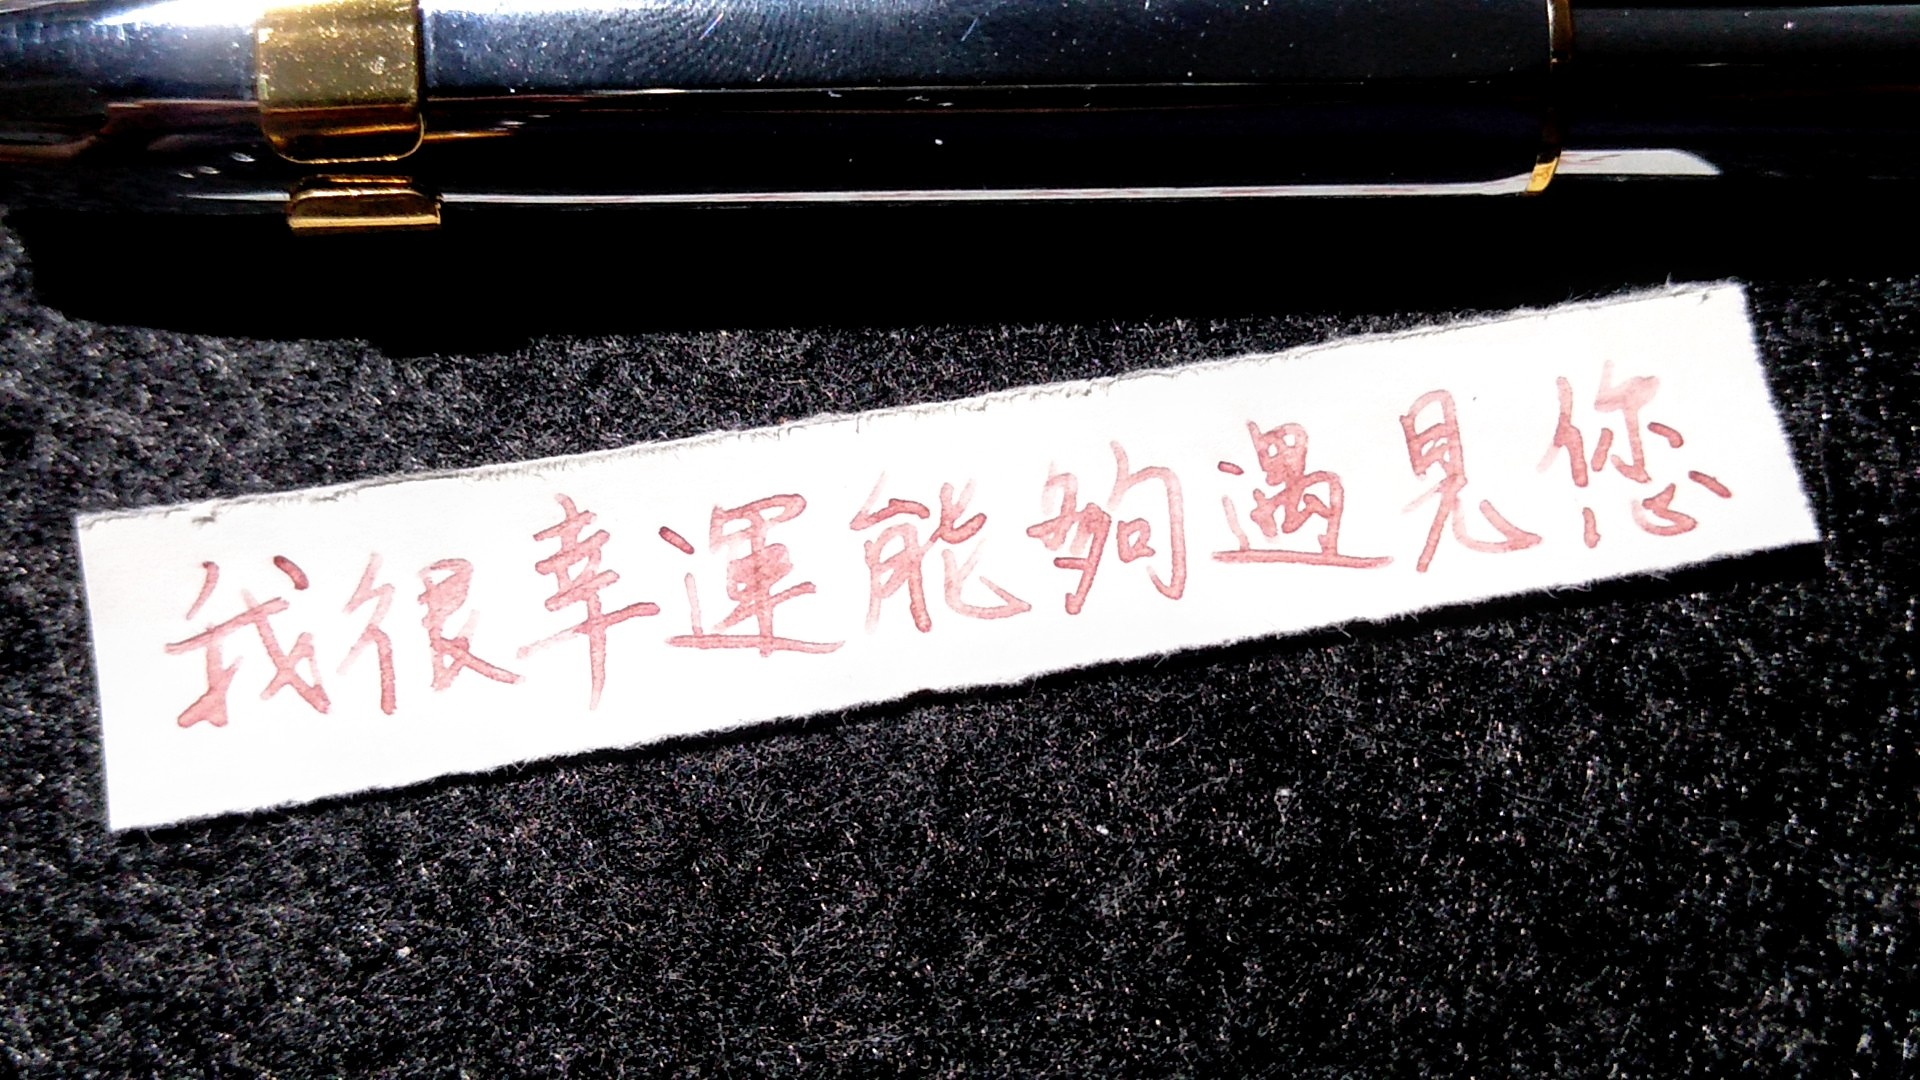 我很幸運能夠遇見您